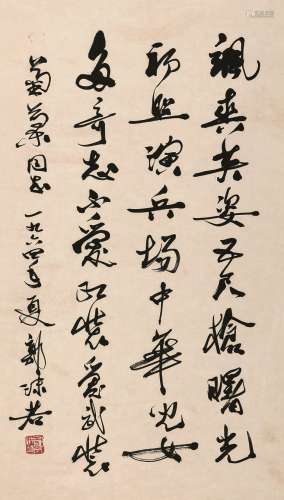 飒爽英姿五尺枪曙光
初照演兵场中华儿女
多奇志不爱红装爱武装
菊菜同志 一九六四年夏 郭沫若